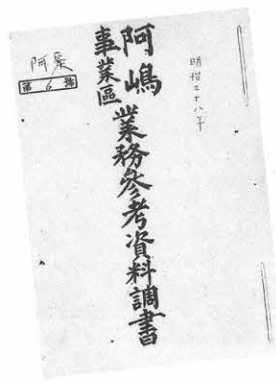 明治三十八年
阿嶋
事業區
業務參考資料調書
第6號